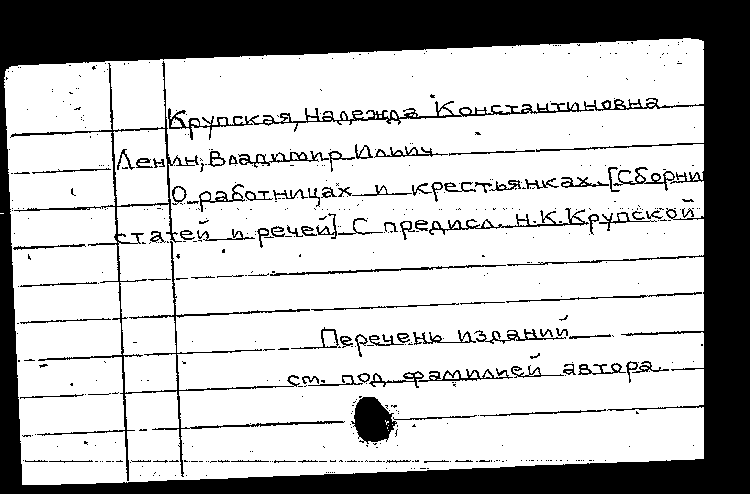 Крупская, Надежда Константиновна
Ленин, Владимир Ильич
О работницах и крестьянках. [Сборни
статей и речей] С предисл. Н.К.Крупской.
Перечень изданий
см. под фамилией автора.